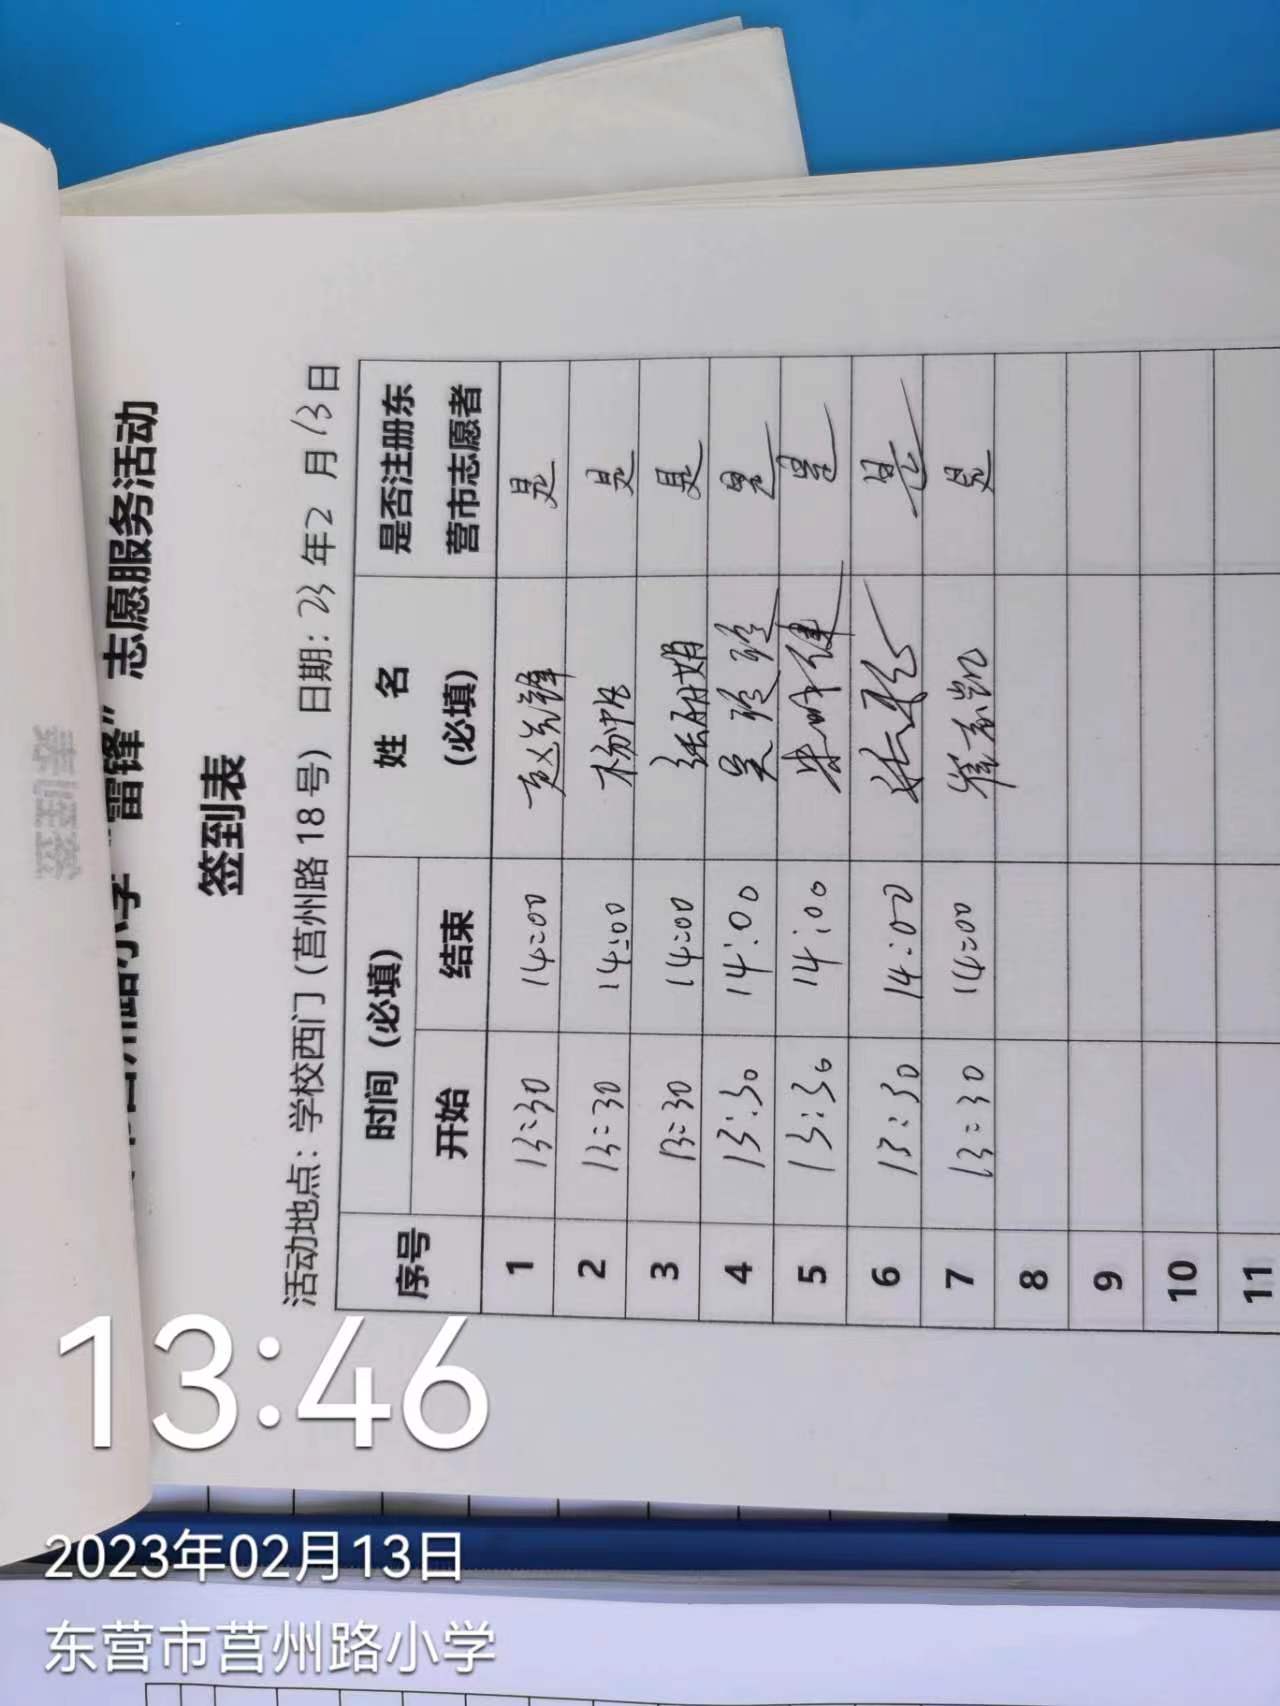 莒州路小学“雷锋”志愿服务活动
签到表
活动地点：学校西门（莒州路18号） 日期：23年2月13日
序号 时间（必填） 姓 名（必填） 是否注册东营市志愿者
开始 结束
1 13:30 14:00 赵先锋 是
2 13:30 14:00 杨帅 是
3 13:30 14:00 张丹娟 是
4 13:30 14:00 吴珍珍 是
5 13:30 14:00 是
6 13:30 14:00 是
7 13:30 14:00 崔志凯 是
8
9
10
11
13:46
2023年02月13日
东营市莒州路小学